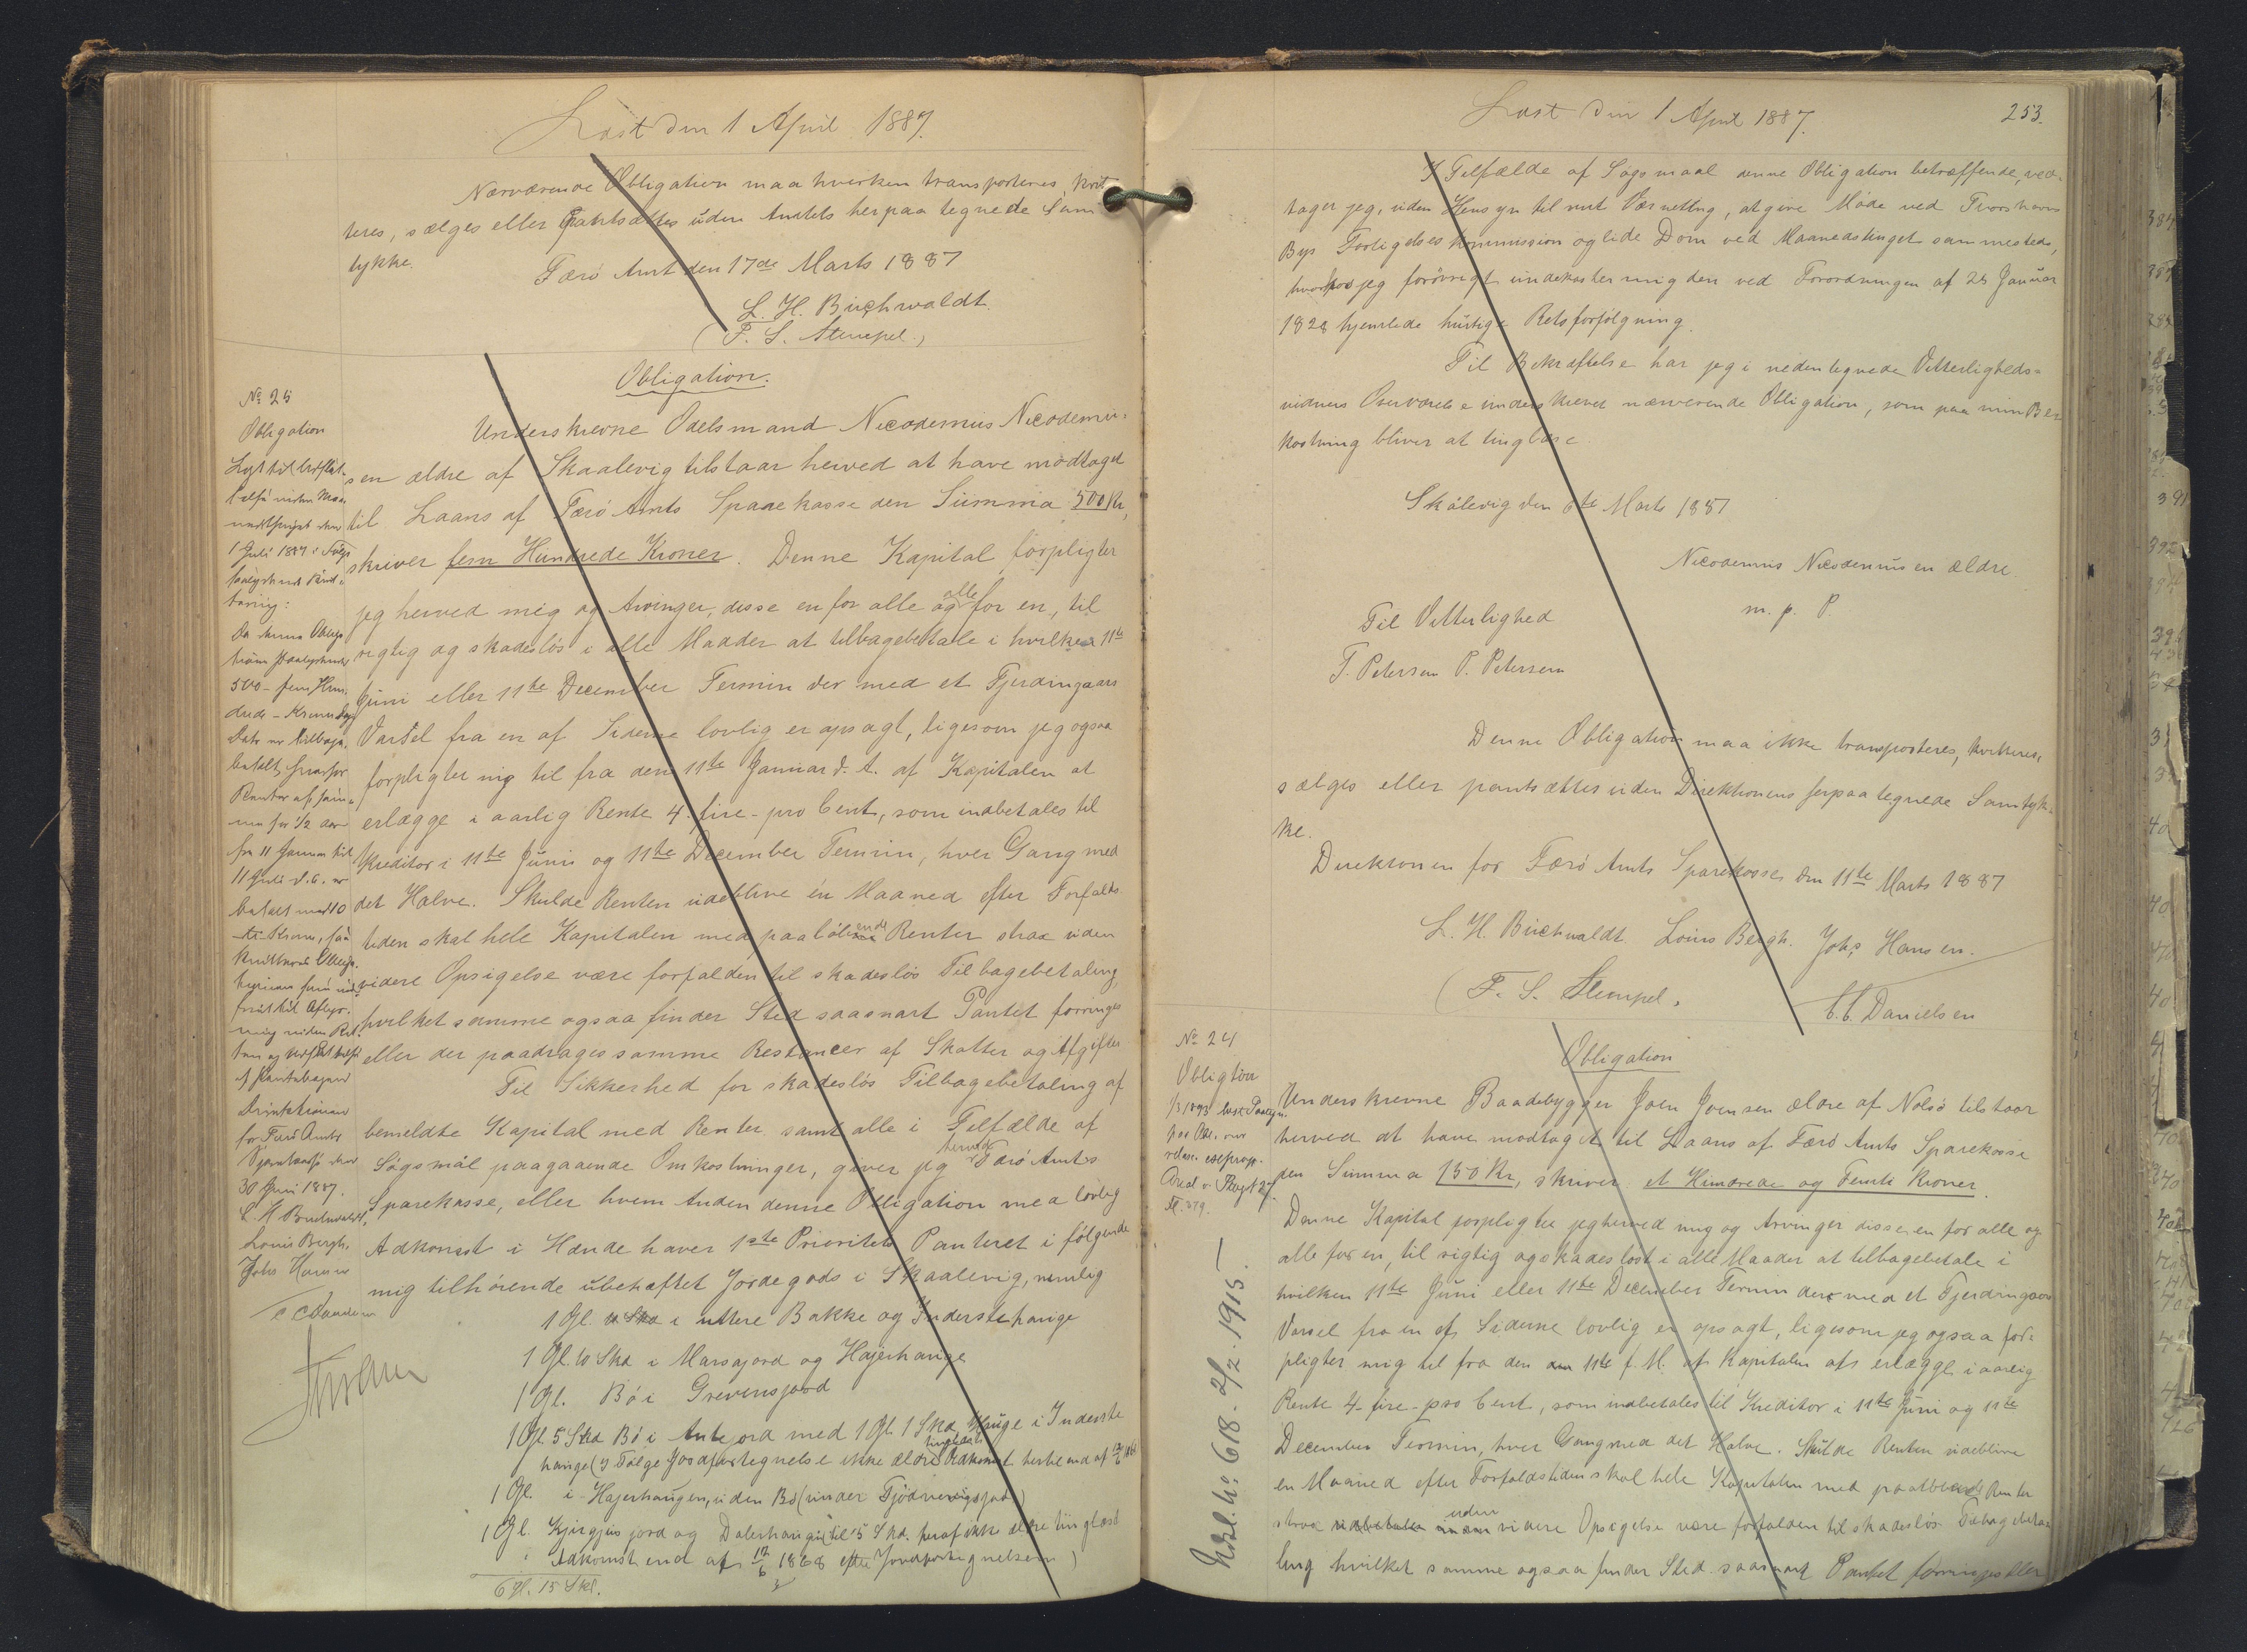 Læst den 1 April 1887.
Nærværende Obligation maa hverken transporteres, kvit-
teres, sælges eller pantsættes uden Amtets herpaa tegnede Sam
tykke.
Færö Amt den 17de Marts 1887
L. H. Buchwaldt.
(F. S. Stempel.)
Obligation.
No 25
Obligation
Underskrevne Odelsmand Nicodemus Nicodemu-
sen ældre af Skaalevig tilstaar herved at have modtaget
til Laans af Færö Amts Sparekasse den Summa 500 Kr,
skriver fem Hundrede Kroner. Denne Kapital forpligter
jeg herved mig og Arvinger, disse en for alle og alle for en, til
rigtig og skadeslös i alle Maader at tilbagebetale i hvilken 11te
Juni eller 11te December Termin der med et Fjerdingaars
Varsel fra en af Siderne lovlig er opsagt, ligesom jeg ogsaa
forpligter mig til fra den 11te Januar d. A. af Kapitalen at
erlægge i aarlig Rente 4 - fire - pro Cent, som indbetales til
Kreditor i 11te Juni og 11te December Termin, hver Gang med
det Halve. Skulde Renten udeblive en Maaned efter Forfalds
tiden skal hele Kapitalen med paalöbende Renter strax uden
videre Opsigelse være forfalden til skadeslös Tilbagebetaling,
hvilket samme ogsaa finder Sted saasnart Pantet forringes
eller der paadrages samme Restancer af Skatter og Afgifter
Til Sikkerhed for skadeslös Tilbagebetaling af
bemeldte Kapital med Renter samt alle i Tilfælde af
Sögsmål paagaaende Omkostninger, giver jeg herved Færö Amts
Sparekasse, eller hvem Anden denne Obligation med lovlig
Adkomst i Hænde haver 1ste Prioritets Panteret i fölgende
mig tilhörende ubehæftet Jordegods i Skaalevig, nemlig
1 Gl. 10 Skd i uttere Bakke og Inderstehauge
1 Gl. 10 Skd i Marsajord og Hajerhauge
1 Gl. Bö i Grevinsjord
1 Gl. 5 Skd Bö i Antejord med 1 Gl. 1 Skd Hauge i Inderste
hauge (I Fölge Jordfortegnelse ikke ældre tinglæst Adkomst hertil end af
1 Gl. i Hajerhaugen, uden Bö (under
1 Gl. Kjirgjus jord og Dalerhauge til 5 Skd. heraf ikke ældre tinglæst
Adkomst end af 17/6 1868 efter Jordfortegnelsen)
6 Gl. 15 Skd.
Lyst til Udslet-
telse
1 Juli 1887 i Fölge
Da denne Obliga-
500 - fem Hun-
drede - Kroner
Dato er tilbage-
betalt, hvorfor
Renter af sam-
me for 1/2 Aar
fra 11 Januar til
11 Juli d. A. er
betalt med 10
ti Kroner, saa
kvitteres Obliga-
Direktionen
for Færö Amts
Sparekasse den
30 Juni 1887.
L. H. Buchwaldt,
Louis Bergh.
Johs Hansen
C C Danielsen
Læst den 1 April 1887.
253.
I Tilfælde af Sögsmaal denne Obligation betræffende, ved-
tager jeg, uden Hensyn til mit Værneting, at give Möde ved Thorshavns
Bys Forligelses kommission og lide Dom ved Maanedstinget sammesteds,
hvorhos jeg forövrigt underkaster mig den ved Forordningen af 25 Januar
1828 hjemlede hurtige Retsforfölgning.
Til Bekræftelse har jeg i nedentegnede Vitterligheds-
vidners Overværelse underskrevet nærværende Obligation, som paa min Be-
kostning bliver at tinglæse.
Skålevig den 6te Marts 1887
Nicodemus Nicodemusen ældre.
m. p. P.
Til Vitterlighed
T. Petersen P. Petersen
Denne Obligation maa ikke transporteres, kvitteres,
sælges eller pantsættes uden Direktionens herpaa tegnede Samtyk-
ke.
Direktionen for Færö Amts Sparekasse, den 11te Marts 1887
L. H. Buchwaldt Louis Bergh. Johs Hansen.
(F. S. Stempel.
C. C. Danielsen
No 24
Obligtion
1/3 1893 læst Paategn.
Obligation
Underskrevne Baadebygger Joen Joensen ældre af Nolsö tilstaar
herved at have modtaget til Laans af Færö Amts Sparekasse
den Summa 150 Kr, skriver et Hundrede og Femti Kroner.
Denne Kapital forpligter jeg herved mig og Arvinger disse en for alle og
alle for en, til rigtig og skadeslöst i alle Maader at tilbagebetale i
hvilken 11te Juni eller 11te December Termin der med et Fjerdingaars
Varsel fra en af Siderne lovlig er opsagt, ligesom jeg ogsaa for-
pligter mig til fra den 11te f. M. af Kapitalen at erlægge i aarlig
Rente 4 - fire - pro Cent, som indbetales til Kreditor i 11te Juni og 11te
December Termin, hver Gang med det Halve. Skulde Renten udeblive
en Maaned efter Forfaldstiden skal hele Kapitalen med paalöbende Renter
strax uden videre Opsigelse være forfalden til skadeslös Tilbagebeta-
ling hvilket samme ogsaa finder Sted saasnart Pantet forringes eller
Udsl. No 618 - 2/2 - 1915